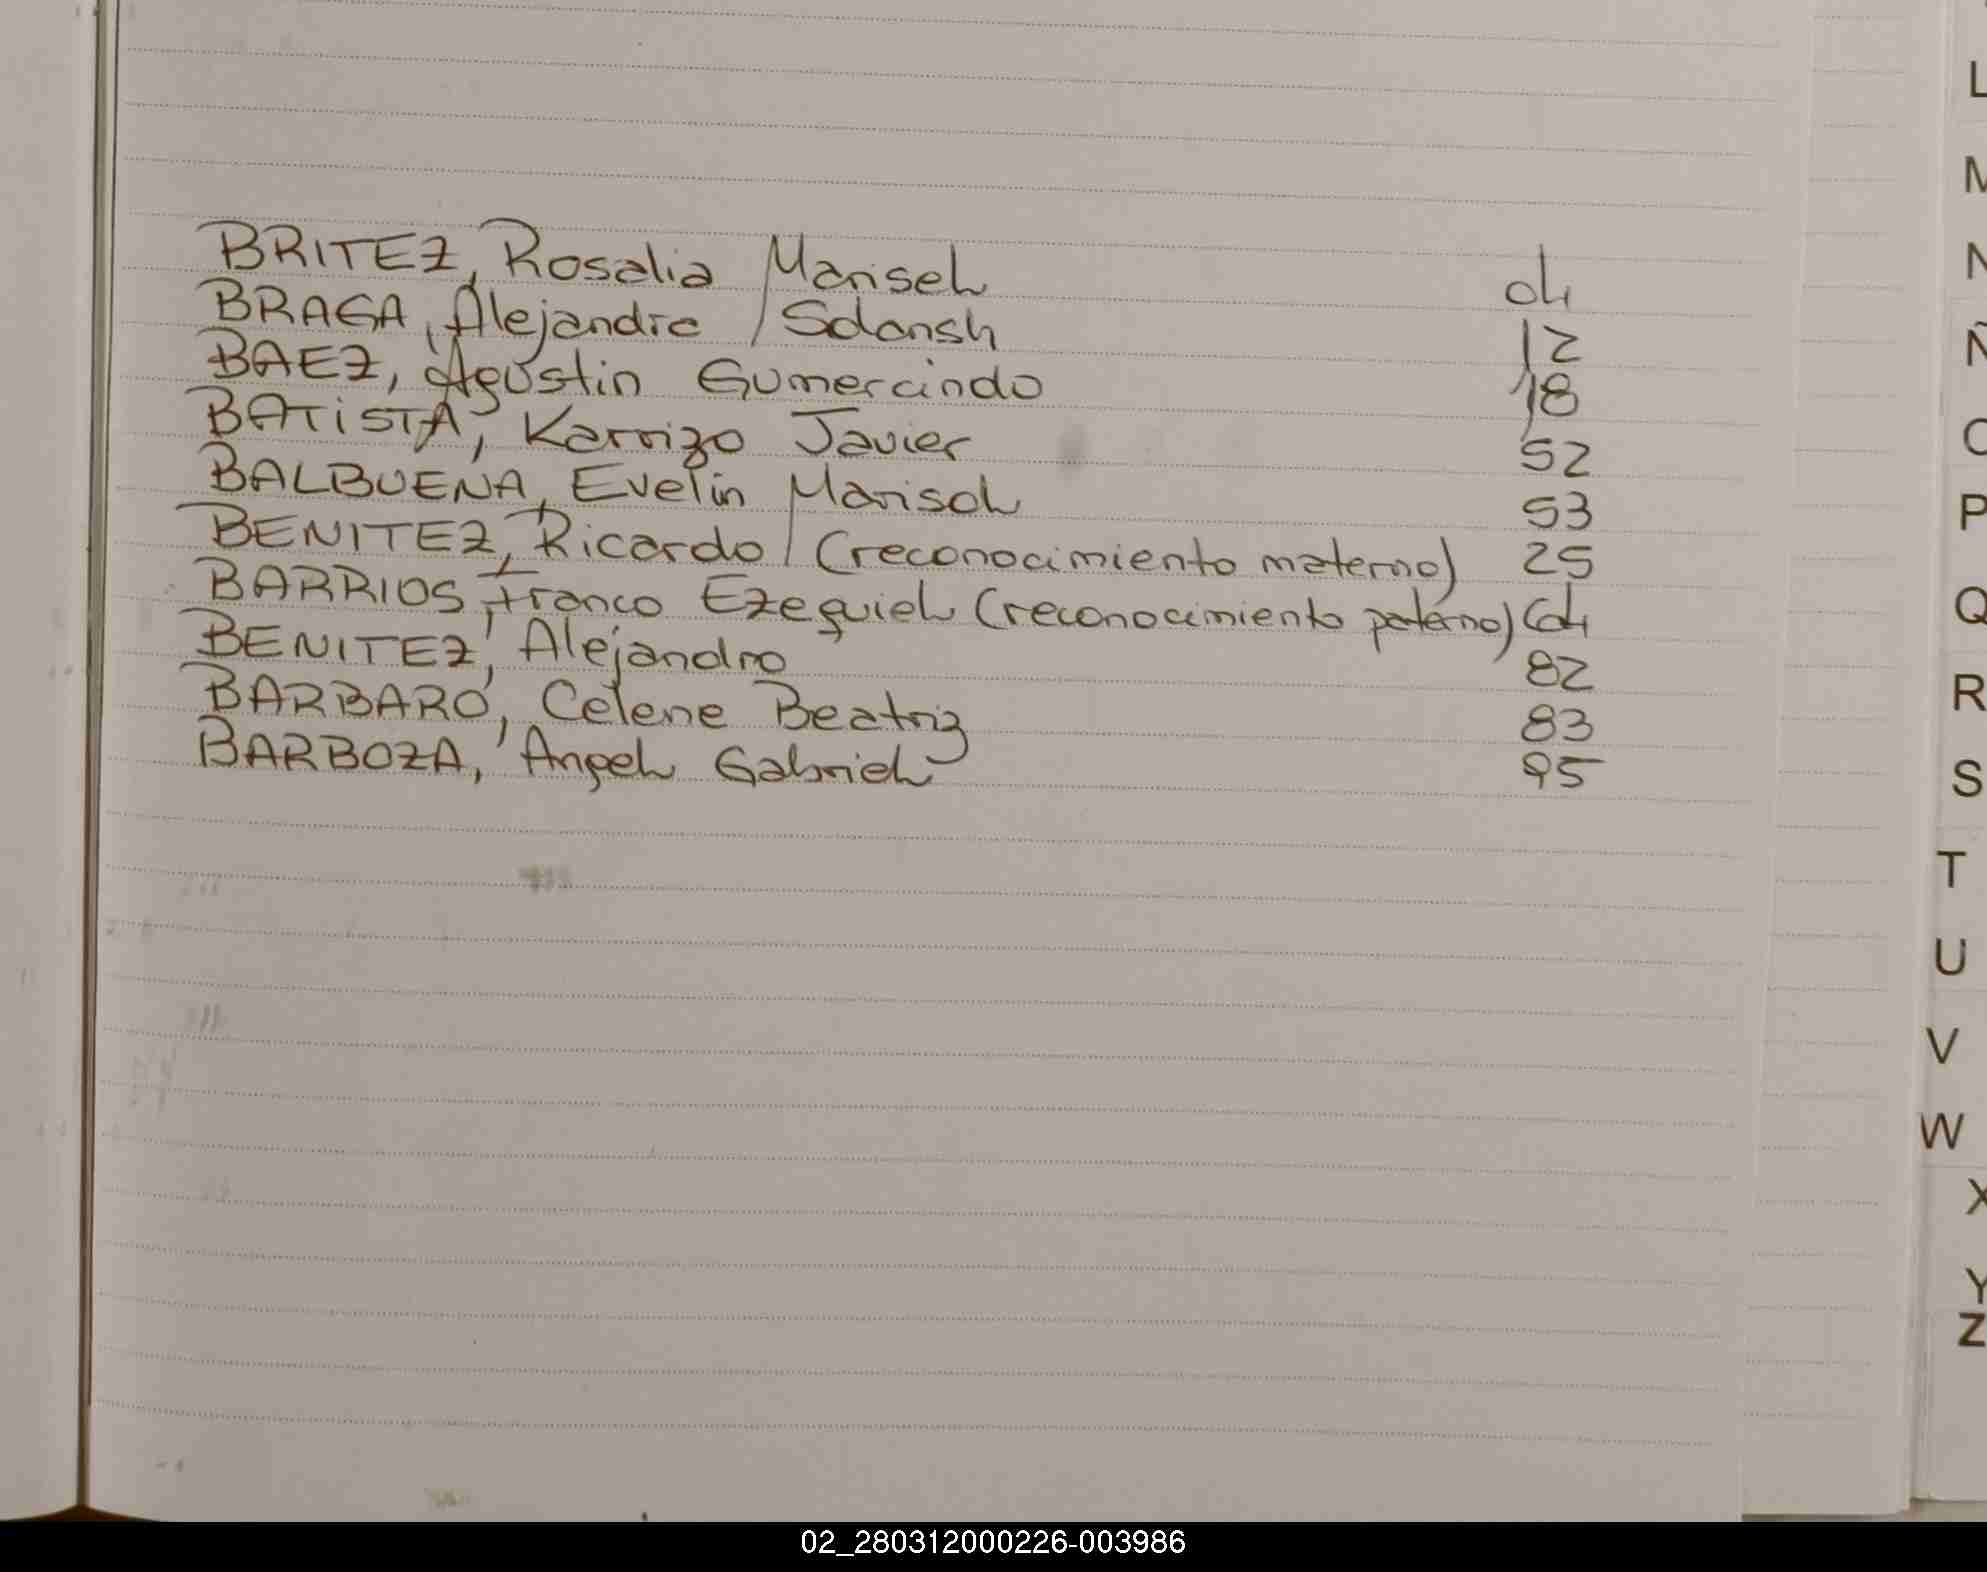 BRITEZ, Rosalia Marisel 04
BRAGA, Alejandro 12
BAEZ, Agustin Gumercindo 18
BATiSTA, Karrizo Javier 52
BALBUENA, Evelin Marisol 53
BENITEZ, Ricardo (reconocimiento materno) 25
BARRIOS, Franco Ezequiel (reconocimiento paterno) 64
BENITEZ, Alejandro 82
BARBARO, Celene Beatriz 83
BARBOZA, Angel Gabriel 95
L
M
N
Ñ
O
P
Q
R
S
T
U
V
W
X
Y
Z
02_280312000226-003986